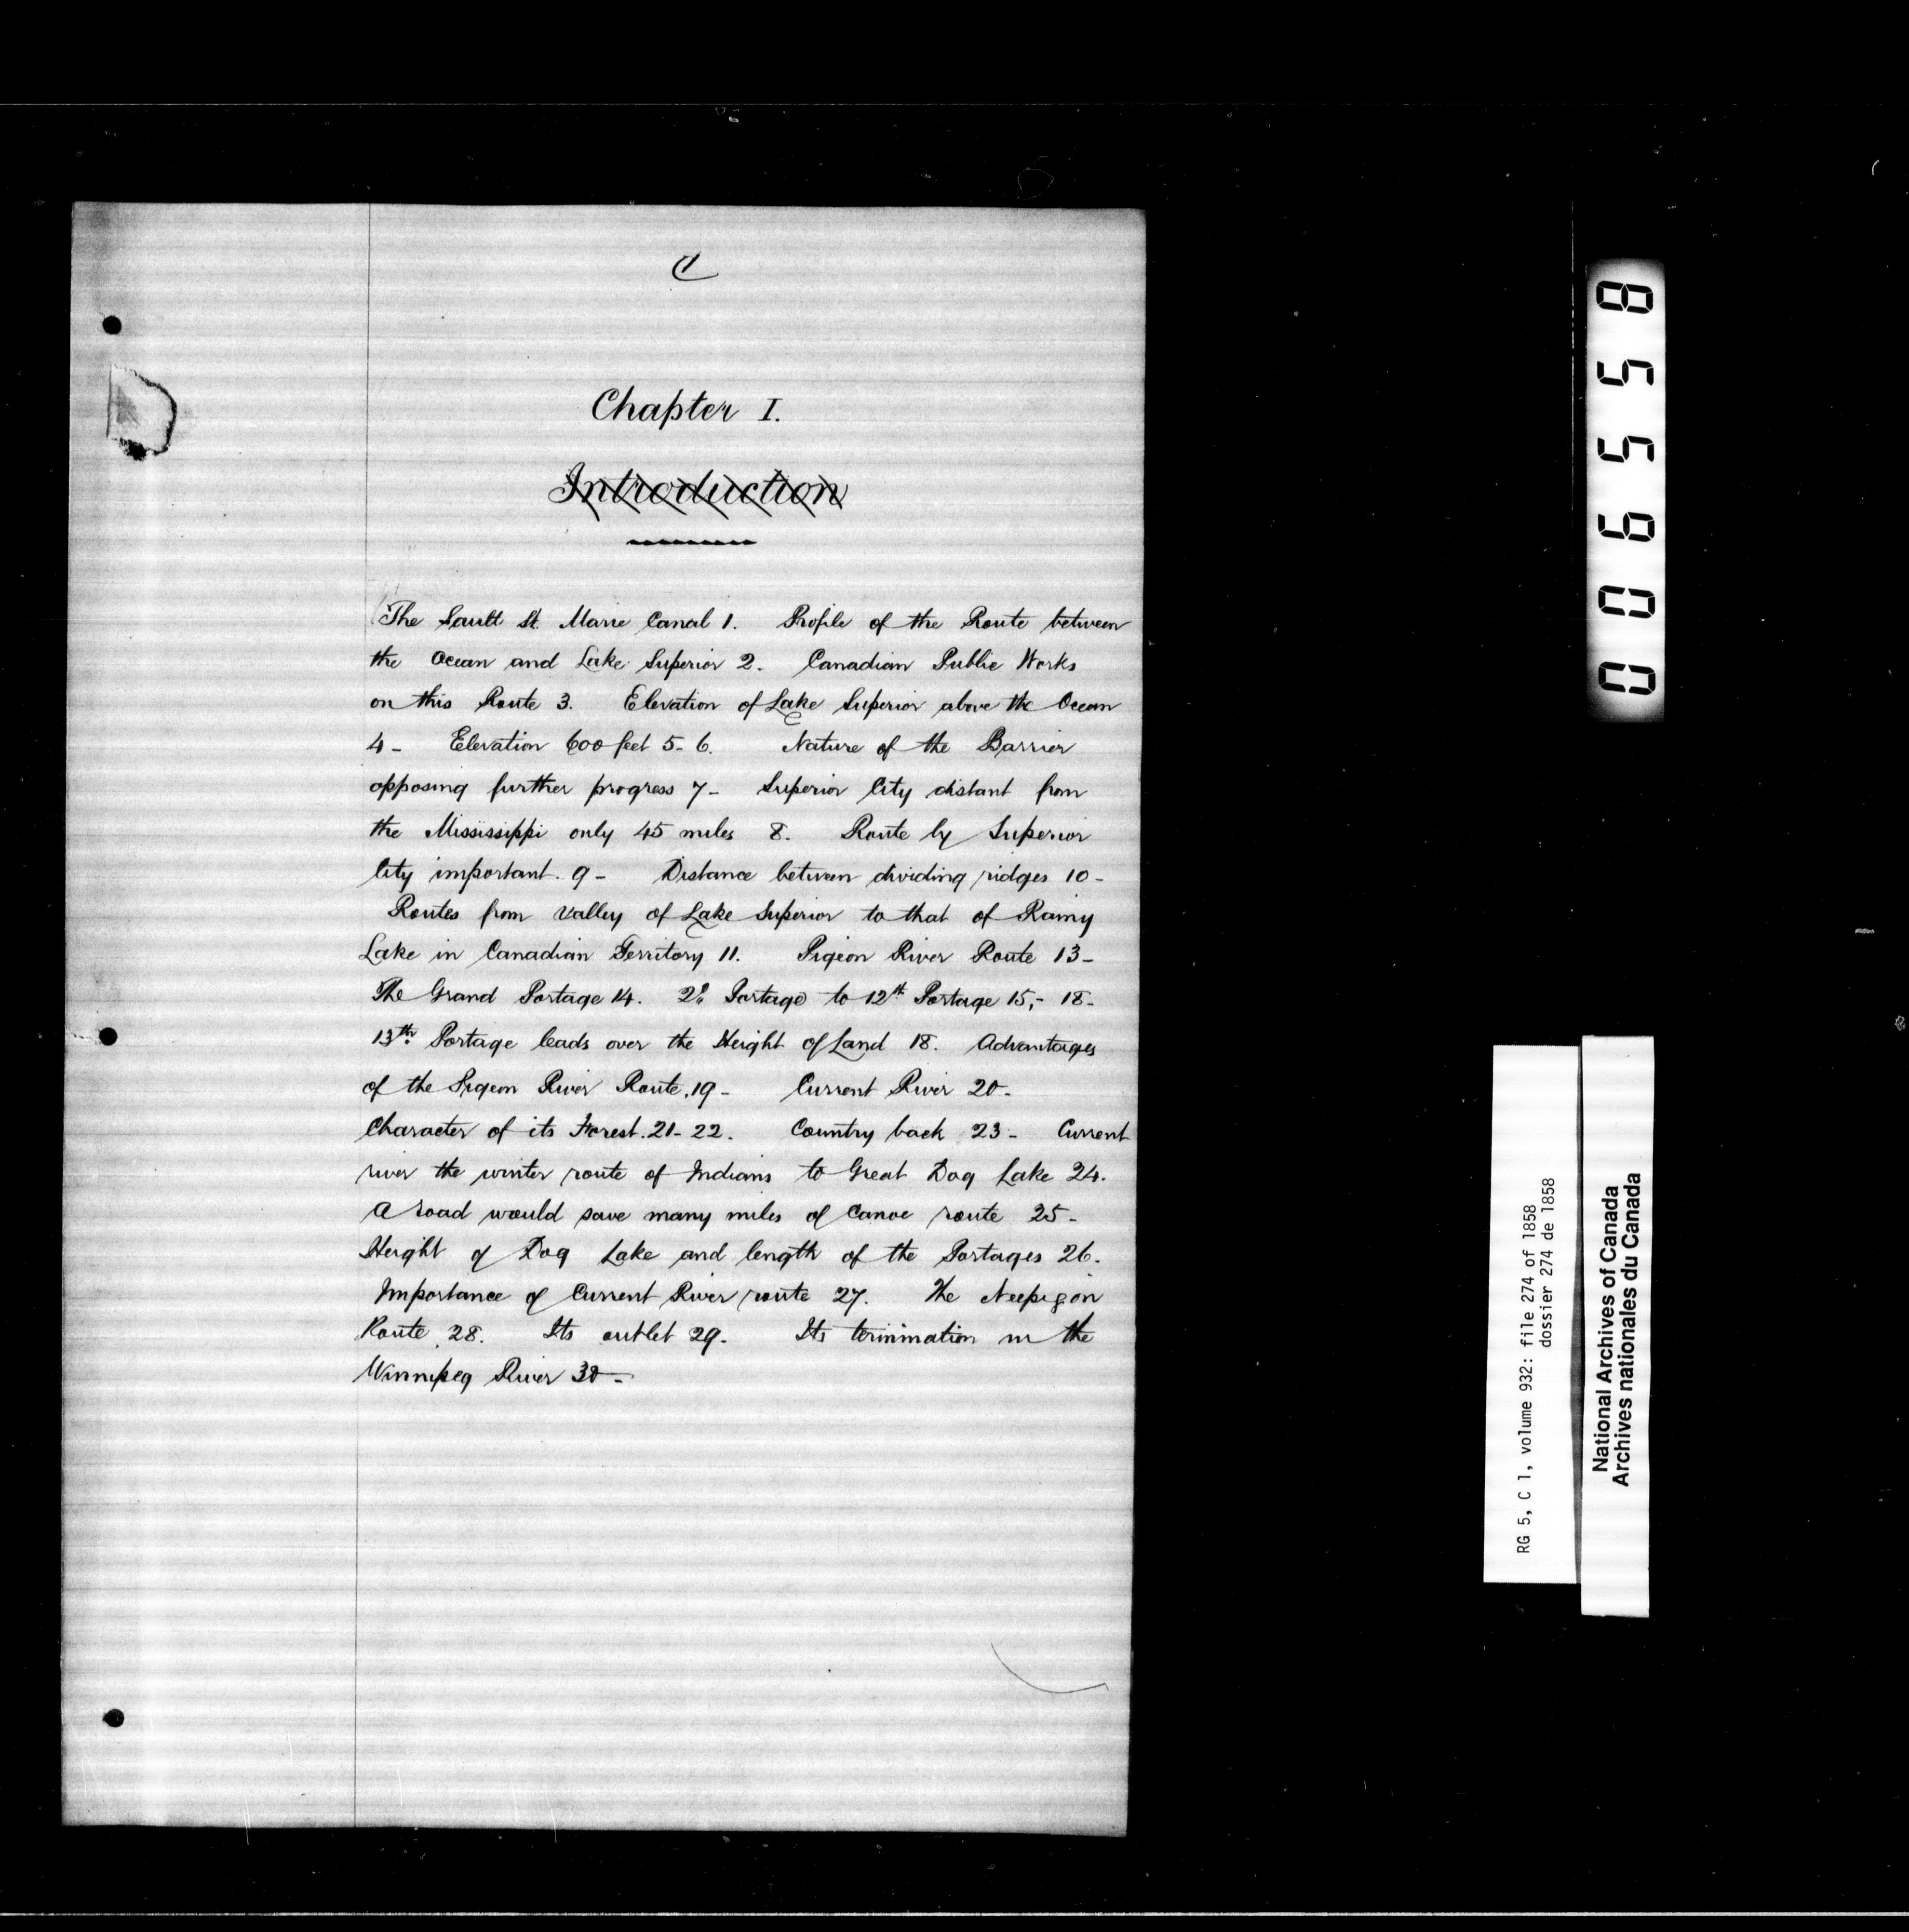 C
Chapter I.
Introduction
The Sault St. Marie Canal 1. Profile of the Route between
the Ocean and Lake Superior 2. Canadian Public Works
on this Route 3. Elevation of Lake Superior above the Ocean
4- Elevation 600 feet 5-6. Nature of the Barrier
opposing further progress 7- Superior City distant from
the Mississippi only 45 miles 8. Route by Superior
City important. 9- Distance between dividing ridges 10-
Routes from Valley of Lake Superior to that of Rainy
Lake in Canadian Territory 11. Pigeon River Route 13-
The Grand Portage 14. 2d Portage to 12th Portage 15,- 18-
13th. Portage leads over the Height of Land 18. Advantages
of the Pigeon River Route. 19- Current River 20-
Character of its Forest. 21-22. Country back 23- Current
river the winter route of Indians to Great Dog Lake 24.
A road would save many miles of Canoe route 25-
Height of Dog Lake and length of the Portages 26.
Importance of Current River route 27. The Neepigon
Route 28. Its outlet 29. Its termination in the
Winnipeg River 30-
006558
RG 5, C 1, volume 932: file 274 of 1858
dossier 274 de 1858
National Archives of Canada
Archives nationales du Canada